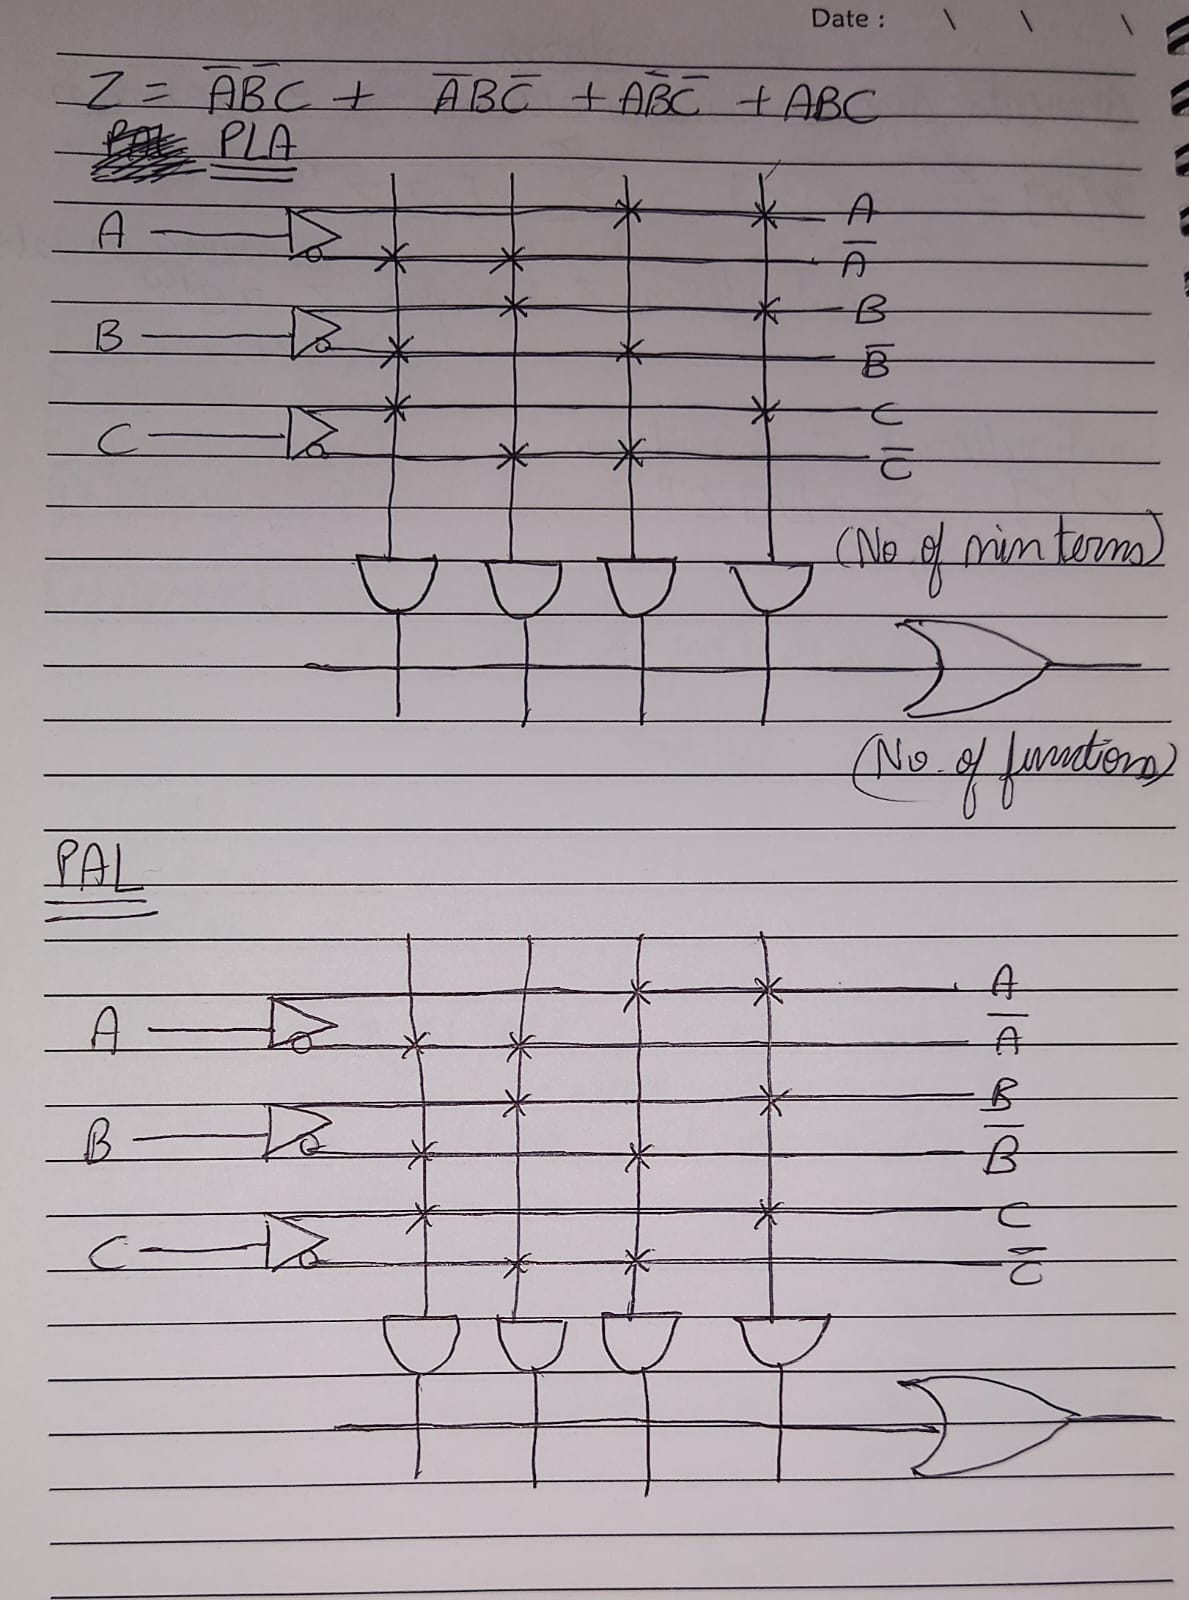 Date : \ \ \
Z = A̅B̅C + A̅BC̅ + AB̅C̅ + ABC
PLA
A A
A̅
B B
B̅
C C
C̅
(No of min terms)
(No. of functions)
PAL
A A
A̅
B B
B̅
C C
C̅